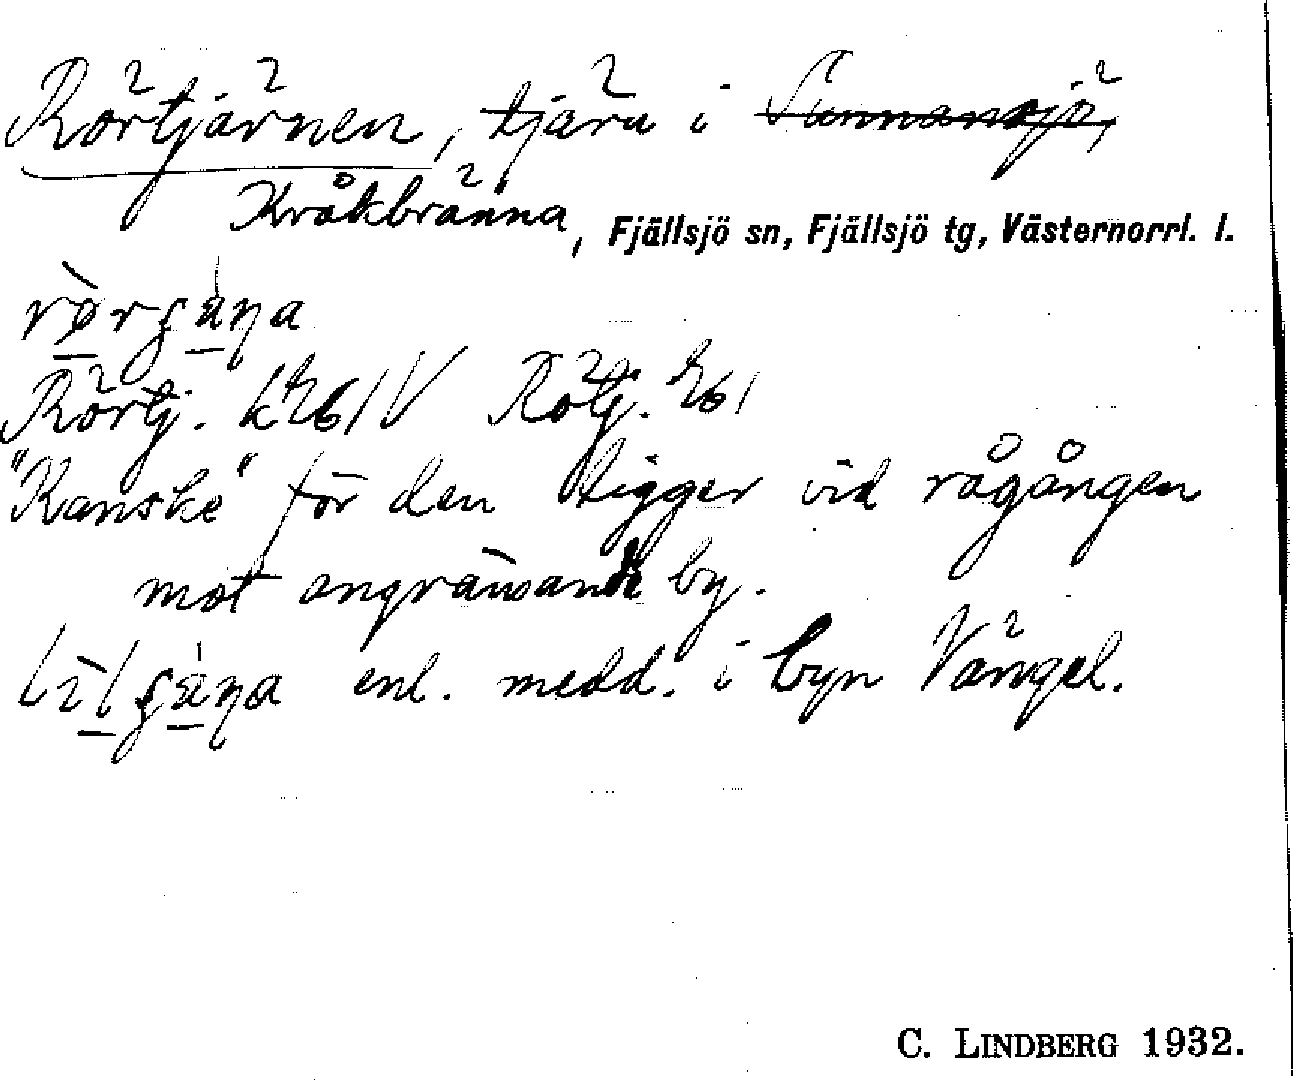 Rörtjärnen, tjärn i Sunnansjö,
Kråkbränna, Fjällsjö sn, Fjällsjö tg, Västernorrl. l.
Rörtj. k261V Rötj. E61
"Kanske" för den ligger vid rågången
mot angränsande by.
enl. medd. i byn Vängel.
C. LINDBERG 1932.